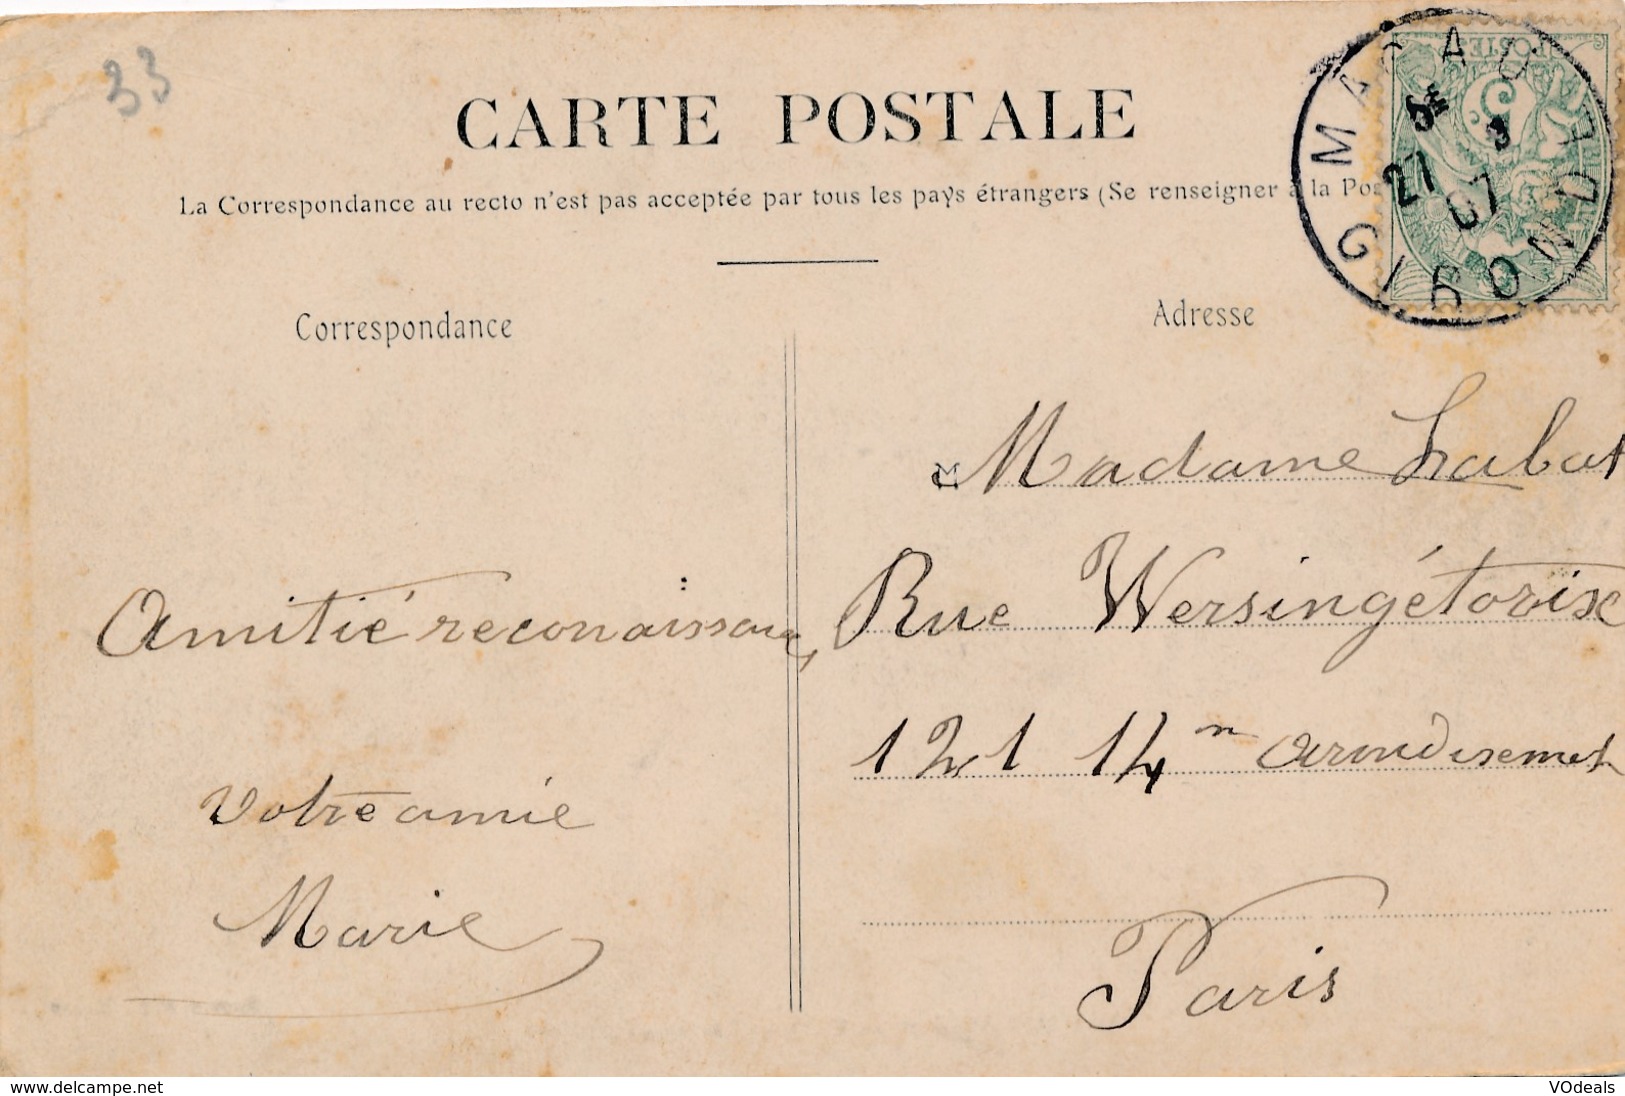 33
CARTE POSTALE
La Correspondance au recto n'est pas acceptée par tous les pays étrangers (Se renseigner à la Pos
MACAU
27 3
07
GIRONDE
POSTES
Correspondance
Adresse
M Madame Labat
Rue Wersingétorix
121 14m arondisement
Paris
Amitié reconaissance
votre amie
Marie
www.delcampe.net
VOdeals